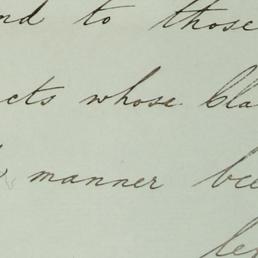 nd to those
cts whose cla
manner bee
le